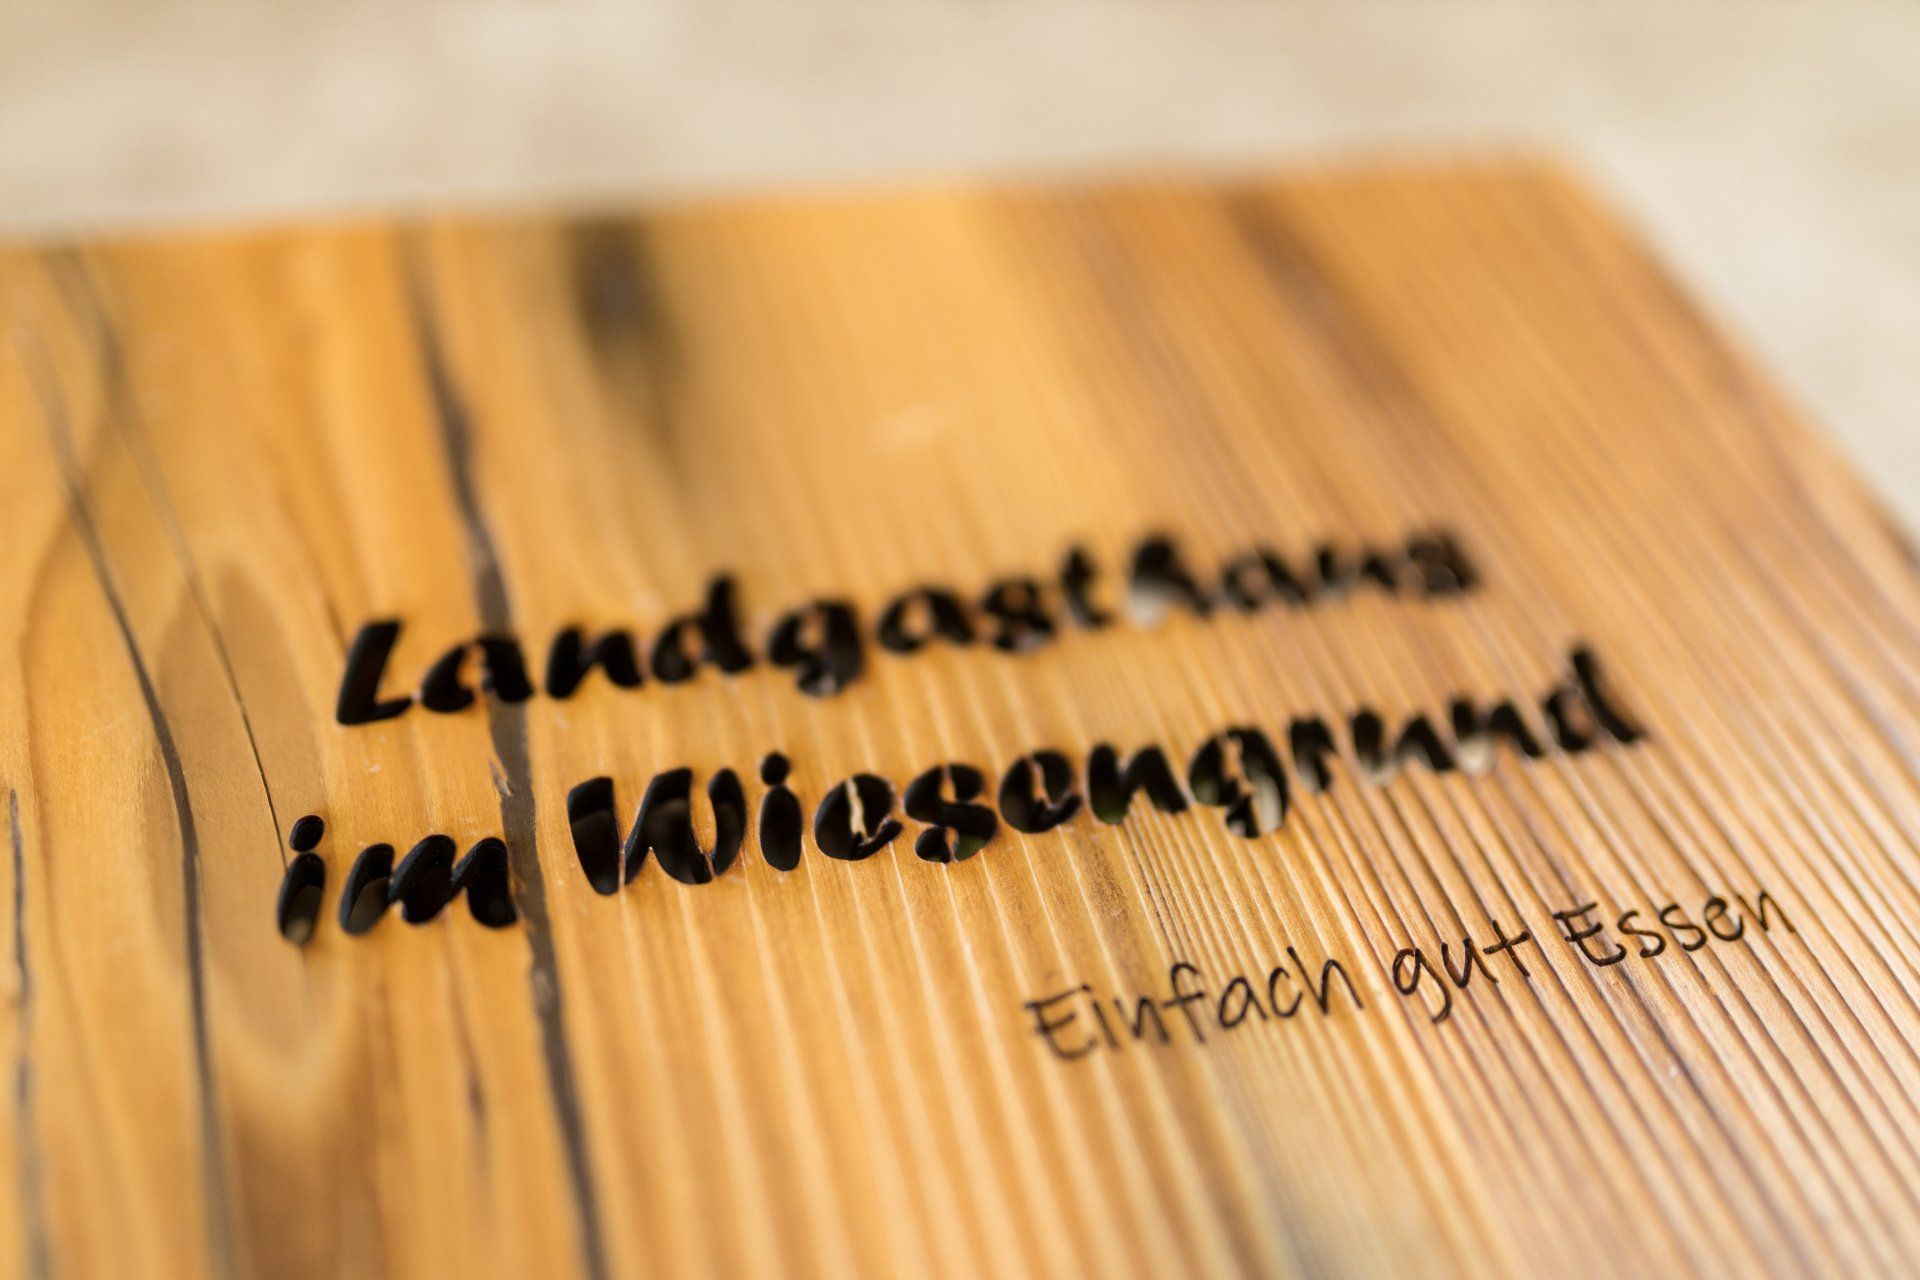 Landgasthaus
im Wiesengrund
Einfach gut Essen